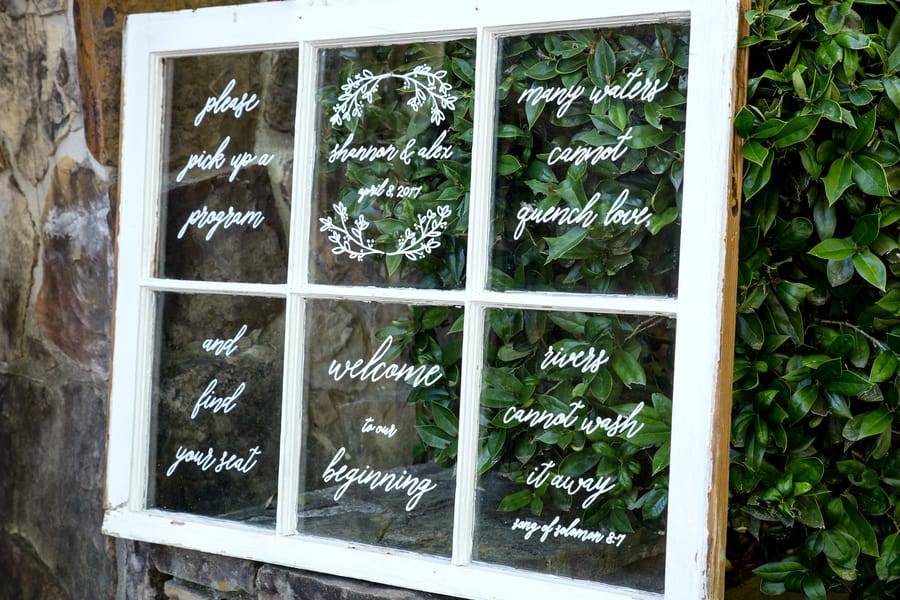 please
pick up a
program
and
find
your seat
shannon & alex
april 8, 2017
welcome
to our
beginning
many waters
cannot
quench love,
rivers
cannot wash
it away
song of solomon 8:7